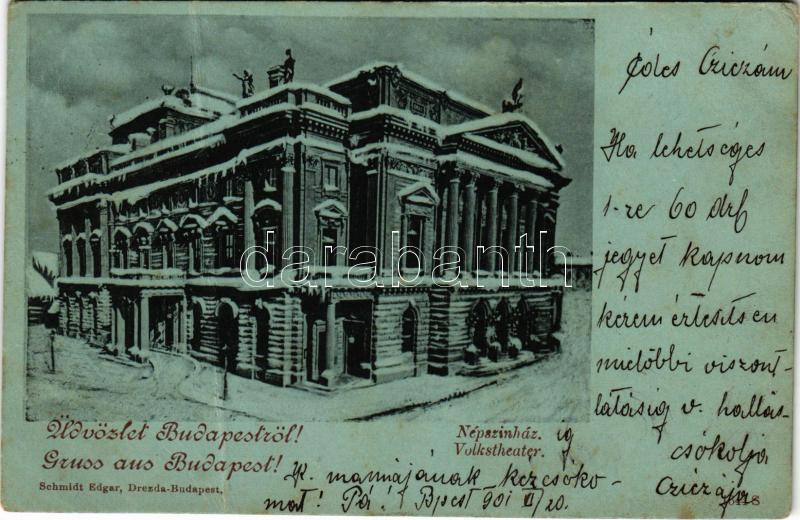 Édes Cziczám
Ha lehetséges
1-re 60 drb
jegyet kapnom
kérem értesítsen
mielőbbi viszont-
látásig v. hallás-
ig
csókolja
Cziczája
darabanth
Üdvözlet Budapestről!
Gruss aus Budapest!
Népszinház.
Volkstheater.
Schmidt Edgar, Drezda-Budapest.
K. mamájának kezcsóko-
mat! Pá! Bpest 901 II/20.